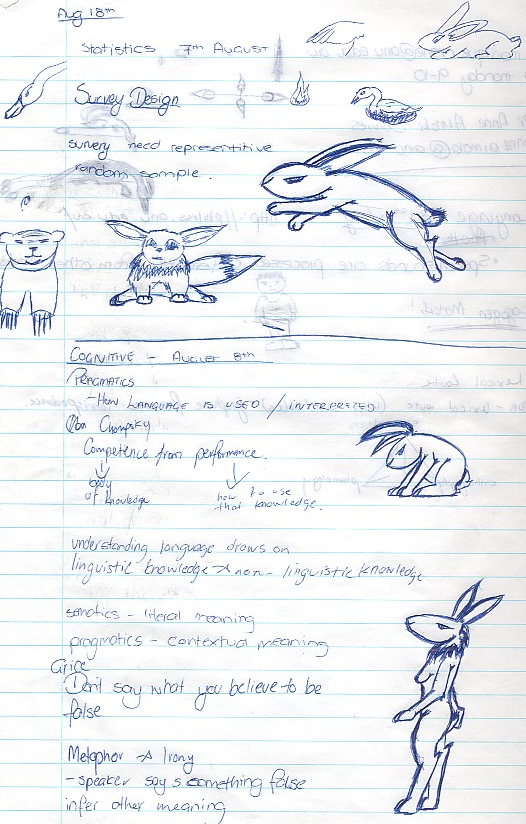 Aug 18th
Statistics 7th August
Survey Design
survery need representitive
random sample.
COGNITIVE - AUGUST 8th
PRAGMATICS
- HOW LANGUAGE IS USED / INTERPRETED
Chompsky
Competence from performance.
body
of knowledge
how to use
that knowledge.
understanding language draws on
linguistic knowledge + non-linguistic knowledge
sematics - literal meaning
pragmatics - contextual meaning
Grice
Don't say what you believe to be
false
Metaphor + Irony
- speaker says something false
infer other meaning